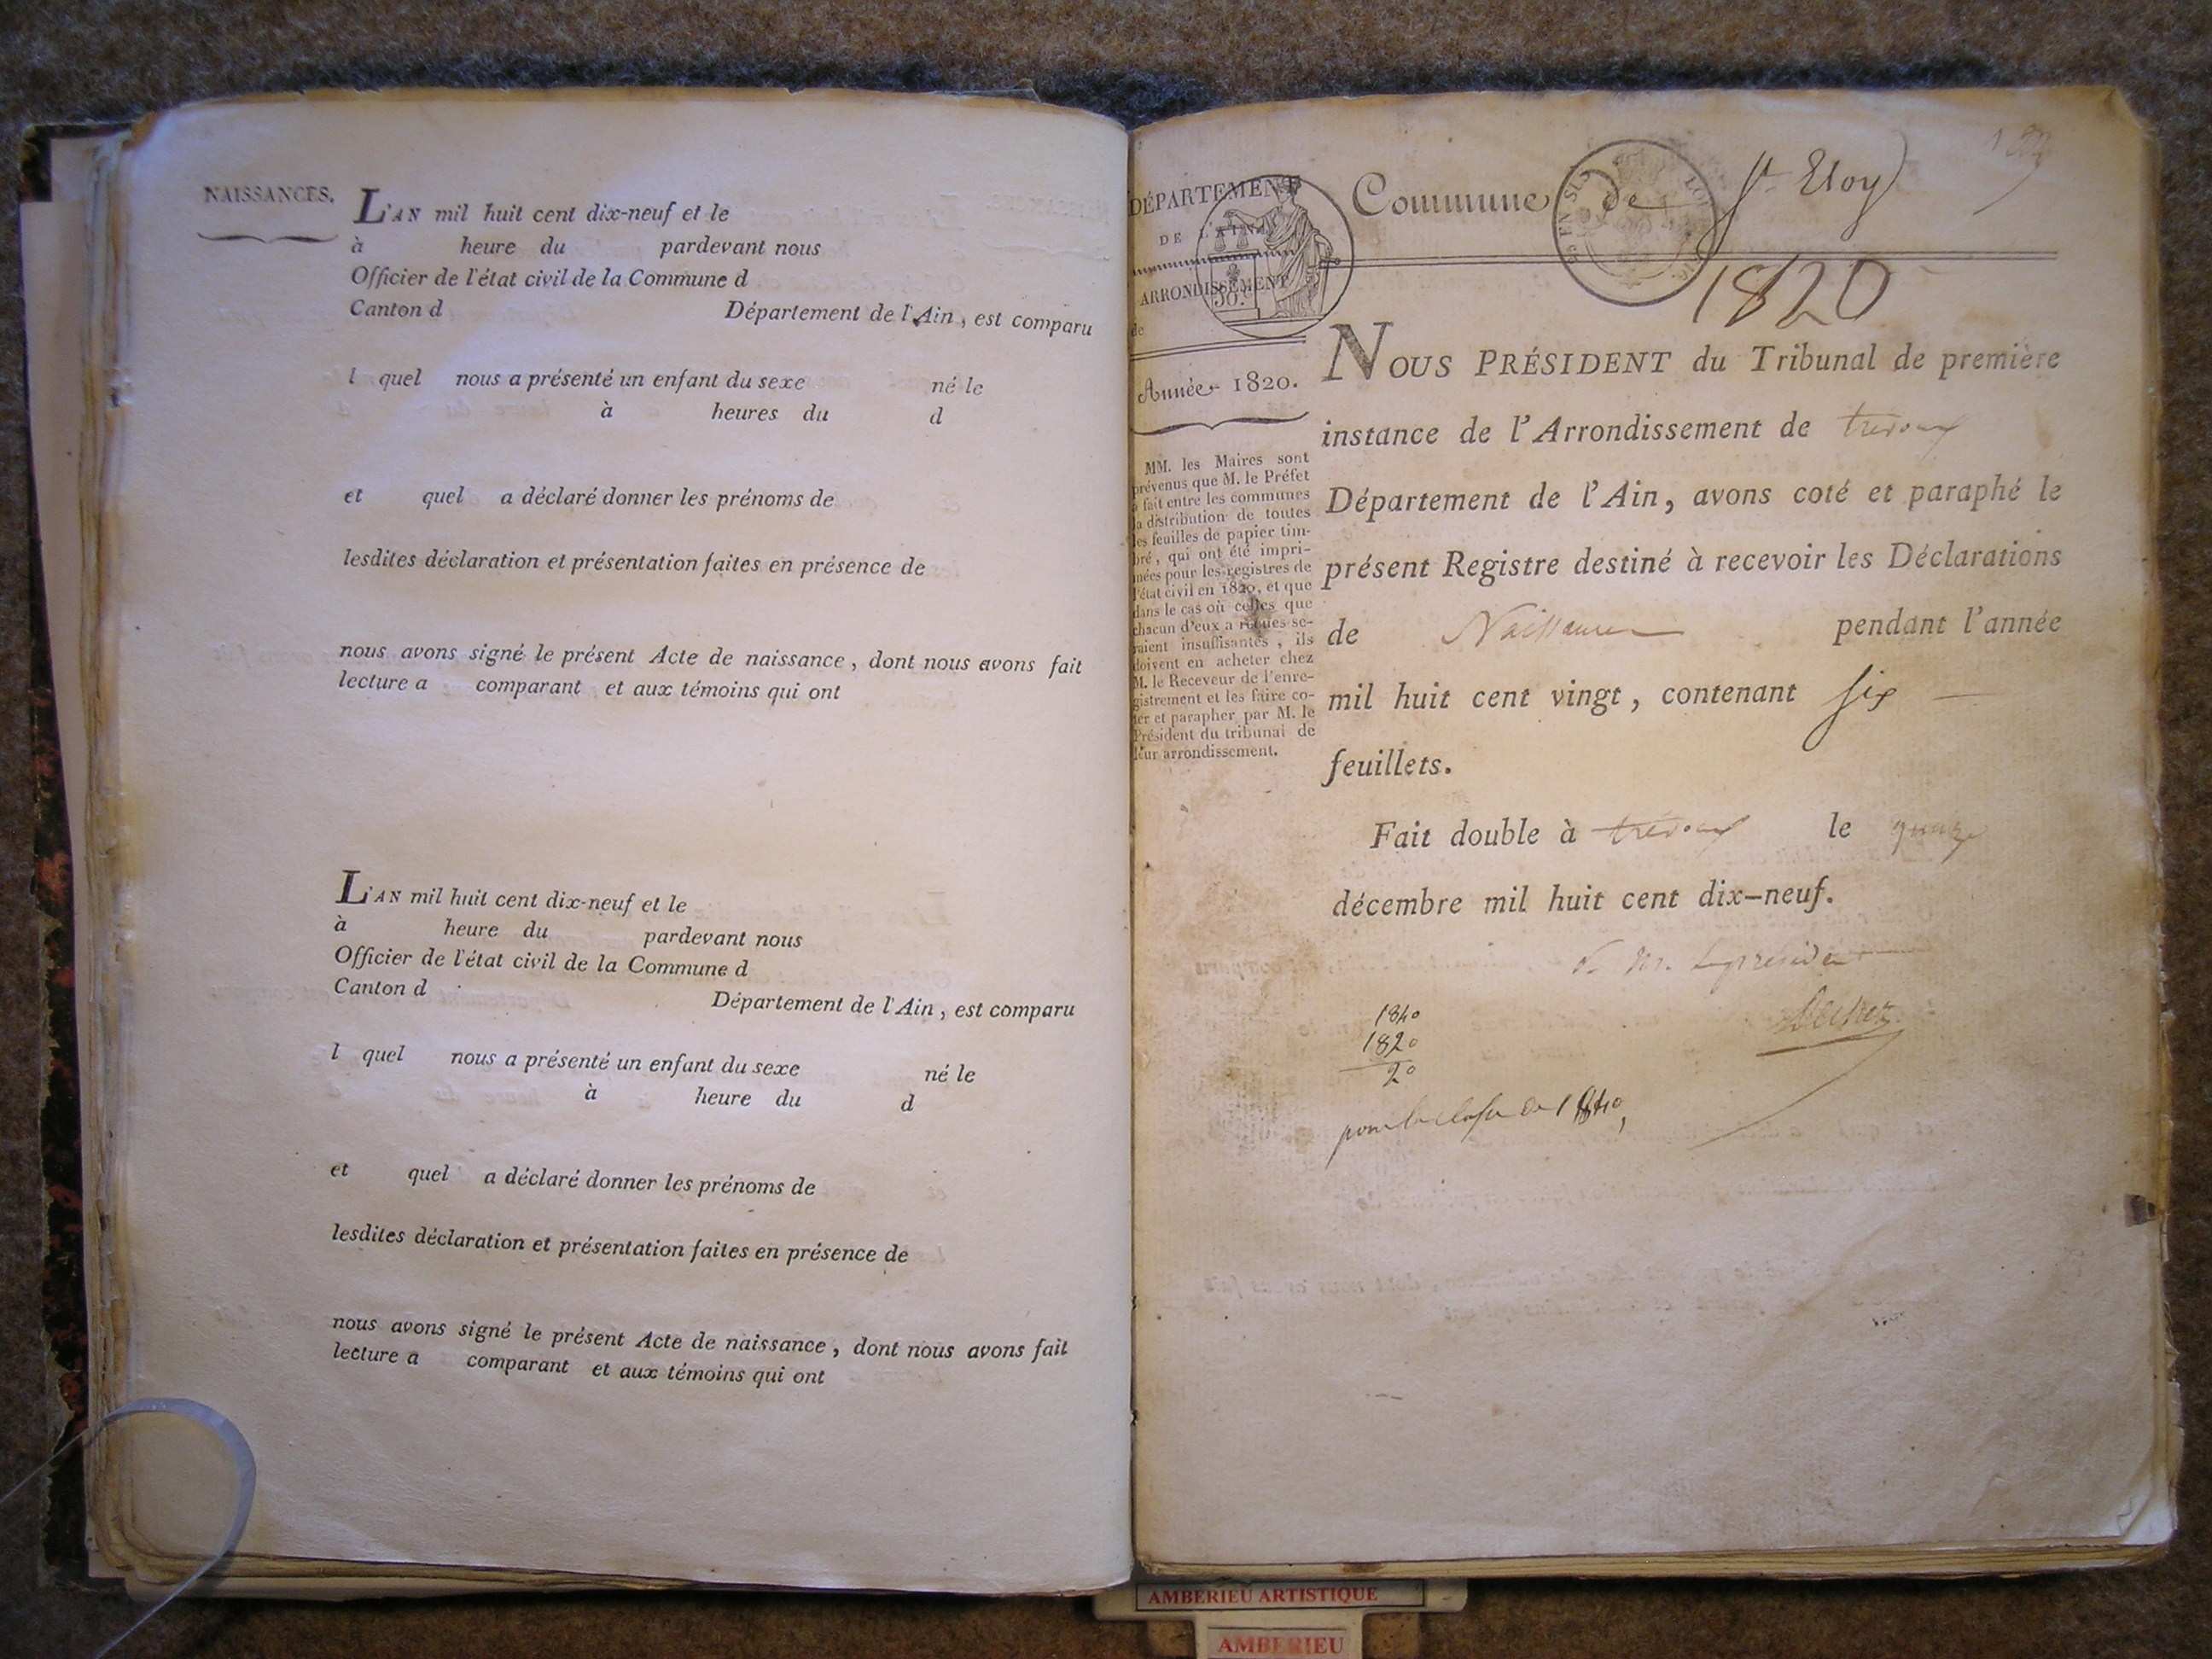 NAISSANCES.
L'AN mil huit cent dix-neuf et le
à heure du pardevant nous
Officier de l'état civil de la Commune d
Canton d Département de l'Ain, est comparu
l quel nous a présenté un enfant du sexe né le
à heures du d
et quel a déclaré donner les prénoms de
lesdites déclaration et présentation faites en présence de
nous avons signé le présent Acte de naissance, dont nous avons fait
lecture a comparant et aux témoins qui ont
L'AN mil huit cent dix-neuf et le
à heure du pardevant nous
Officier de l'état civil de la Commune d
Canton d Département de l'Ain, est comparu
l quel nous a présenté un enfant du sexe né le
à heure du d
et quel a déclaré donner les prénoms de
lesdites déclaration et présentation faites en présence de
nous avons signé le présent Acte de naissance, dont nous avons fait
lecture a comparant et aux témoins qui ont
DÉPARTEMENT
DE L'AIN
ARRONDISSEMENT
de
Année 1820.
MM. les Maires sont
prévenus que M. le Préfet
a fait entre les communes
la distribution de toutes
les feuilles de papier tim-
bré, qui ont été impri-
mées pour les registres de
l'état civil en 1820, et que
dans le cas où celles que
chacun d'eux a reçues se-
raient insuffisantes, ils
doivent en acheter chez
M. le Receveur de l'enre-
gistrement et les faire co-
ter et parapher par M. le
Président du tribunal de
leur arrondissement.
Commune de St Eloy
1820
NOUS PRÉSIDENT du Tribunal de première
instance de l'Arrondissement de trevoux
Département de l'Ain, avons coté et paraphé le
présent Registre destiné à recevoir les Déclarations
de Naissances pendant l'année
mil huit cent vingt, contenant six
feuillets.
Fait double à trevoux le quinze
décembre mil huit cent dix-neuf.
1840
1820
20
pour la classe de 1840,
AMBERIEU ARTISTIQUE
AMBERIEU